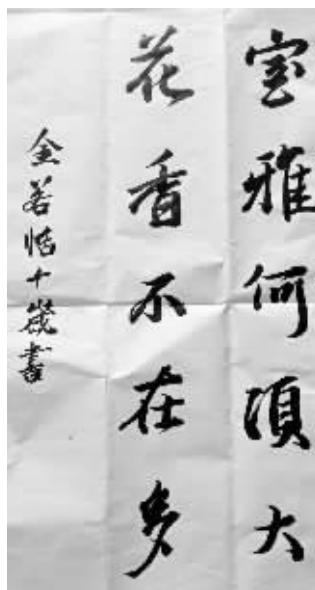 室雅何須大
花香不在多
金若恬十歲書